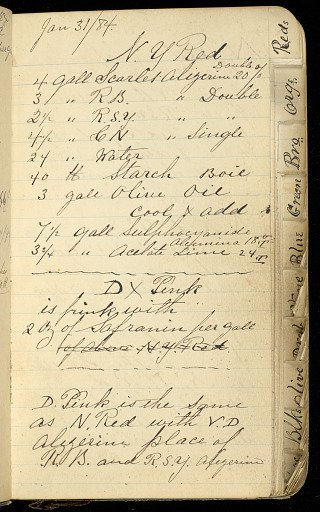 Jan 31/84
N. Y Red
Double of
4 gall Scarlet Alyzerin 20 %
3 " R B. " Double
2½ " R S.Y. " "
" C N " Single
24 " Water
40 lt Starch Boil
3 gall Olive Oil
cool & add
7½ gall Sulphocyanide
Alumina 18
3¼ " Acetate Lime 24
D X Pink
is pink with
2 oz of Safranin per gall
of above N.Y. Red
D. Pink is the same
as N. Red with V.D
Alyzerin place of
R B. and R.S.Y. Alyzerin
Reds
Org.
Bro
Green
Blue
Olive and